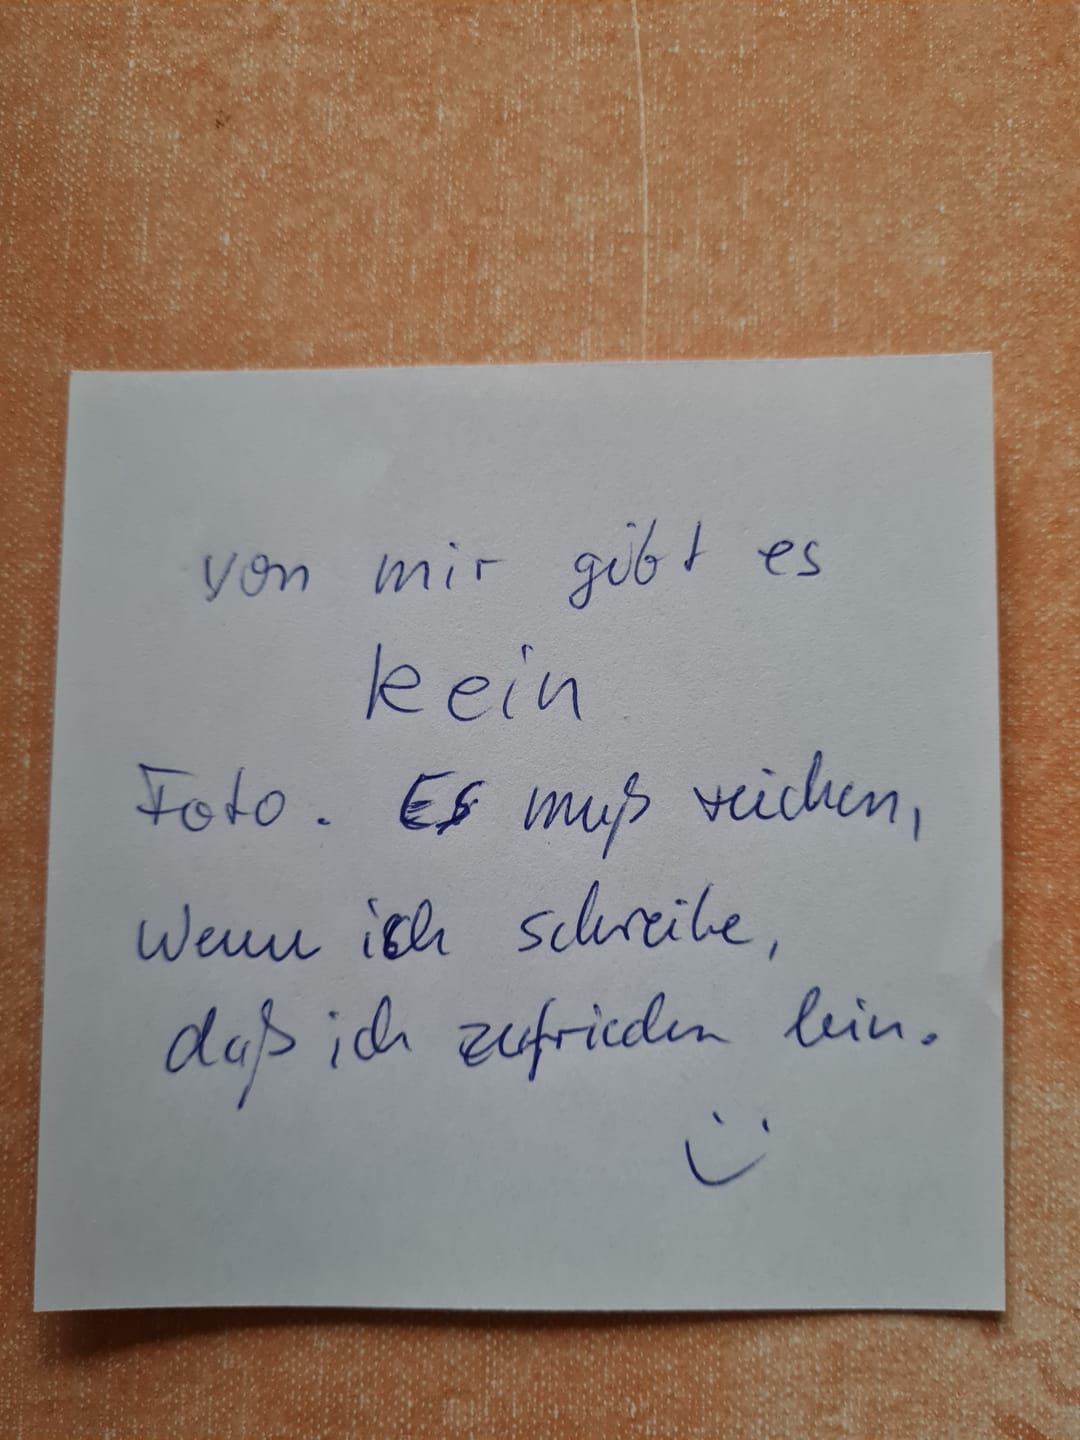 von mir gibt es
kein
Foto. Es muß reichen,
wenn ich schreibe,
daß ich zufrieden bin.